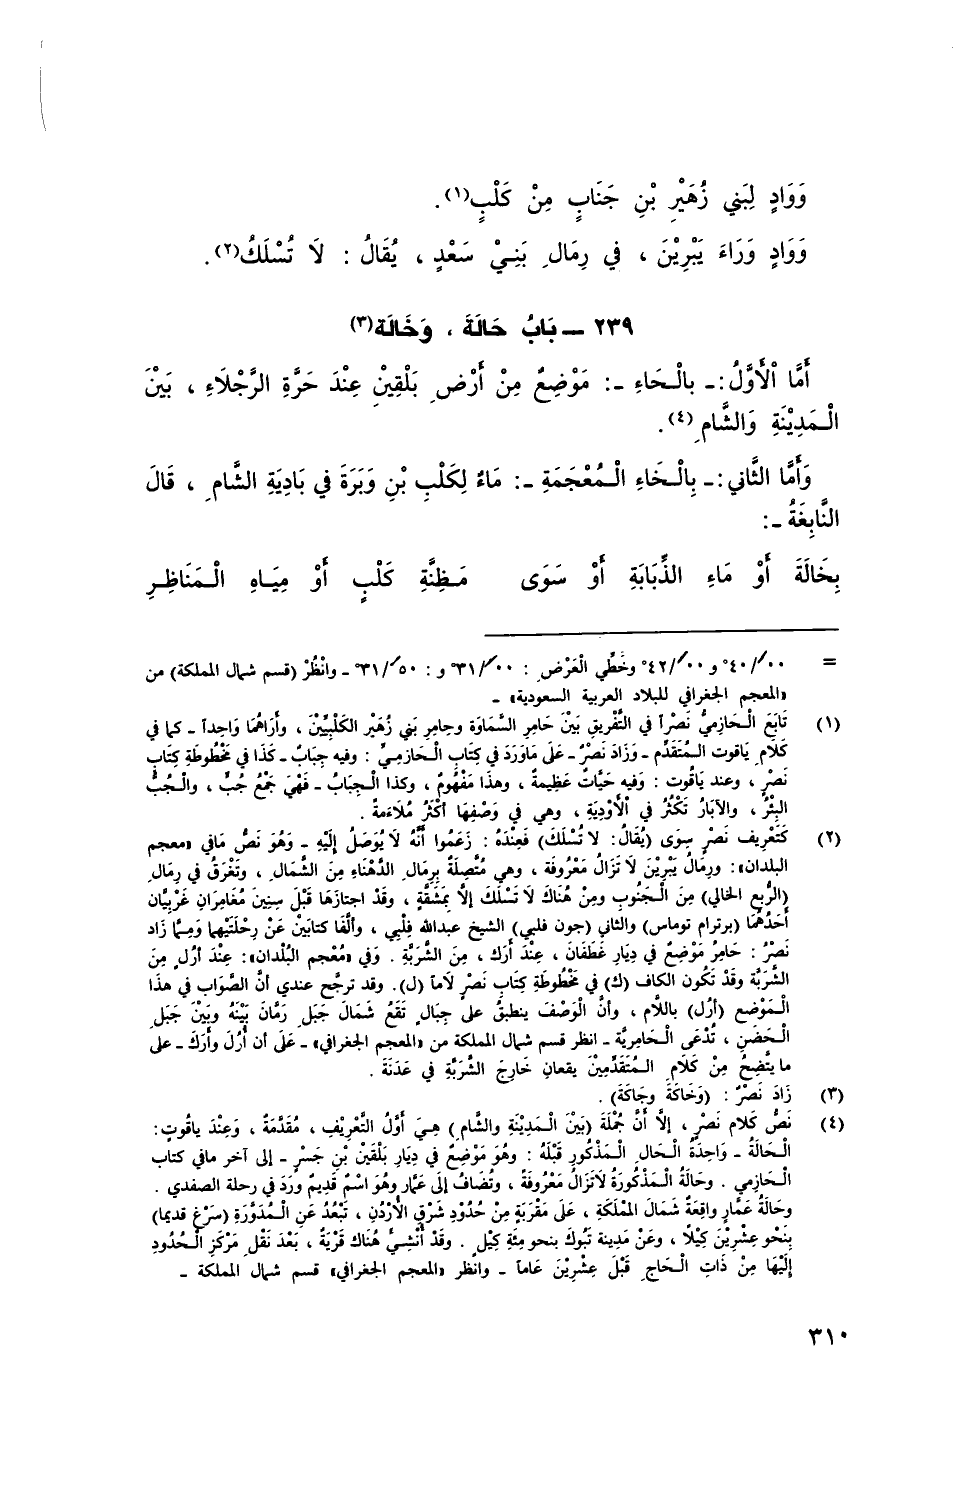 وَوَادٍ لِبَني زُهَيْرِ بْنِ جَنَابٍ مِنْ كَلْبٍ(١).
وَوَادٍ وَرَاءَ يَبْرِيْنَ ، في رِمَالِ بَنِيْ سَعْدٍ ، يُقَالُ : لَا تُسْلَكُ(٢).
٢٣٩ ــ بَابُ حَالَةَ ، وَخَالَة(٣)
أَمَّا اْلأَوَّلُ :ـ بالْحَاءِ ـ: مَوْضِعٌ مِنْ أَرْضِ بَلْقِيْنِ عِنْدَ حَرَّةِ الرَّجْلَاءِ ، بَيْنَ
الْمَدِيْنَةِ وَالشَّامِ(٤).
وَأَمَّا الثَّاني :ـ بِالْخَاءِ الْمُعْجَمَةِ ـ: مَاءٌ لِكَلْبِ بْنِ وَبَرَةَ في بَادِيَةِ الشَّامِ ، قَالَ
النَّابِغَةُ ـ:
بِخَالَةَ أَوْ مَاءِ الذِّنَابَةِ أَوْ سَوَى مَظِنَّةِ كَلْبٍ أَوْ مِيَاهِ الْمَنَاظِرِ
= ٤٠/٠٠° و ٤٢/٠٠° وخَطِّي الْعَرْضِ : ٣١/٠٠° و : ٣١/٥٠° ـ وانْظُرْ (قسم شمال المملكة) من
«المعجم الجغرافي للبلاد العربية السعودية» ـ
(١) تَابَعَ الْحَازِمِيُّ نَصْراً في التَّفْرِيقِ بَيْنَ حَامِرِ السَّمَاوَة وحامِرِ بَني زُهَيْرِ الكَلْبِيِّيْنَ ، وأَرَاهُمَا وَاحِداً ـ كما في
كَلَامِ يَاقوت الْمُتَقَدِّم ـ وَزَادَ نَصْرٌ ـ عَلَى مَاوَرَدَ في كِتَابِ الْحَازِميِّ : وفيه جِبَابٌ ـ كَذَا في مَخْطُوطَةِ كِتَابِ
نَصْرٍ ، وعند يَاقُوت : وَفيه حَيَّاتٌ عَظِيمةٌ ، وهذا مَفْهُومٌ ، وكذا الْجِبَابُ ـ فَهْيَ جَمْعُ جُبٍّ ، والْجُبُّ
البِئْرُ ، والآبَارُ تَكْثُرُ في اْلأَوْدِيَةِ ، وهي في وَصْفِهَا أَكْثَرُ مُلَاءَمةً .
(٢) كَتَعْرِيف نَصْرٍ سِوَى (يُقَالُ: لا تُسْلَكَ) فَعِنْدَهُ : زَعَمُوا أَنَّهُ لاَيُوصَلُ إِلَيْهِ ـ وَهُوَ نَصُّ مَافي «معجم
البلدان»: ورِمَالُ يَبْرِيْنَ لاَتَزَالُ مَعْرُوفة ، وهي مُتَّصِلَةٌ بِرِمَالِ الدَّهْنَاءِ مِنَ الشَّمَالِ ، وتَغْرَقُ في رِمَالِ
(الرُّبع الخالي) مِنَ الْجَنُوبِ ومِنْ هُنَاكَ لا تُسْلَكَ إلَّا بِمَشَقَّةٍ ، وقَدْ اجتازَهَا قَبْلَ سِنِينَ مُغَامِرَانِ غَرْبِيَّان
أحَدُهُمَا (برترام توماس) والثاني (جون فلبي) الشيخ عبدالله فِلْبِي ، وألَّفَا كتابَيْنِ عَنْ رِحْلَتَيْهِما وَمِمَّا زَاد
نَصْرٌ : حَامِرُ مَوْضِعٌ في دِيَارِ غَطَفَانَ ، عِنْدَ أُرَك ، مِنَ الشَّرَبَّةِ . وَفي «مُعْجم البُلْدان»: عِنْدَ أرُلٍ مِنَ
الشَّرَبَّة وَقَدْ تَكُون الكاف (ك) في مَخْطُوطَةِ كِتَابِ نَصْرٍ لَاماً (ل). وقد ترجَّح عندي أنَّ الصَّوَاب في هذا
الْمَوْضع (أرُل) باللَّام ، وأنَّ الْوَصْفَ ينطبقُ على جِبَالٍ تَقَعُ شَمَالَ جَبَلِ رَمَّانَ بَيْنَهُ وبَيْنَ جَبَلِ
الْحَضَنِ ، تُدْعَى الْحَامِرِيَّة ـ انظر قسم شمال المملكة من «المعجم الجغرافي» ـ عَلَى أن أُرُلَ وأُرَكَ ـ على
ما يتَّضِحُ مِنْ كَلَامِ الْمُتَقَدِّمِيْنَ يقعانِ خَارِجَ الشَّرَبَّةِ في عَدَنَةَ .
(٣) زَادَ نَصْرٌ : (وَخَاكَةَ وجَاكَة) .
(٤) نَصُّ كَلَام نَصْرٍ ، إلَّا أَنَّ جُمْلَةَ (بَيْنَ الْمَدِيْنَةِ والشَّامِ) هِيَ أَوَّلُ التَّعْرِيْفِ ، مُقَدَّمَةٌ ، وَعِنْدَ ياقُوتٍ :
الْحَالَةُ ـ وَاحِدَةُ الْحَالِ الْمَذْكُورِ قَبْلَهُ : وهُوَ مَوْضِعٌ في دِيَارِ بَلْقَيْنِ بْنِ جَسْرٍ ـ إلى آخر مافي كتاب
الْحَازِمي . وحَالَةُ الْمَذْكُورَةُ لاَتَزَالُ مَعْرُوفةً ، وتُضَافُ إلَى عَمَّار وهُوَ اسْمٌ قَدِيمٌ وَرَدَ في رحلة الصفدي .
وحَالَةُ عَمَّارٍ واقِعَةٌ شَمَالَ المْلكَةِ ، عَلَى مَقْرَبَةٍ مِنْ حُدُودِ شَرْقِ الأُرْدُنِ ، تَبْعُدُ عَنِ الْمُدَوَّرَةِ (سَرْغ قديما)
بِنَحْوِ عِشْرِيْنَ كِيْلًا ، وعَنْ مَدِينَة تَبُوكَ بنحو مِئَةِ كِيْلٍ . وقَدْ أُنْشِئَ هُنَاكَ قَرْيَةٌ ، بَعْدَ نَقْلِ مَرْكَزِ الْحُدُودِ
إِلَيْهَا مِنْ ذَاتِ الْحَاجِ قَبْلَ عِشْرِيْنَ عَاماً ـ وانظر «المعجم الجغرافي» قسم شمال المملكة ـ
٣١٠